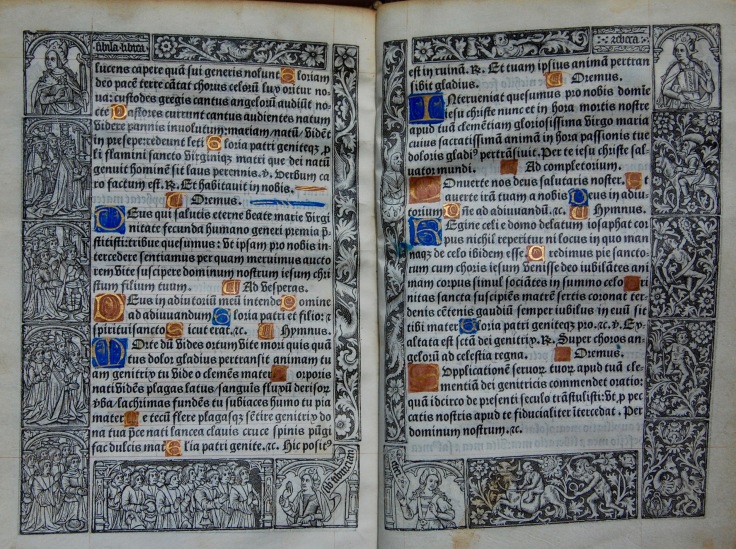 sibila libica
lucens capere quā sui generis nolunt Gloriam
deo pacē terre cātāt chorus celorū lux oritur no
ua: custodes gregis cantus angelorū audiūt no-
cte Pastores currunt cantus audientes natum
videre pannis inuolutum: mariam natū vidēt
in presepe recedunt leti Gloria patri geniteqȝ p̄
li flamini sancto Virginiqȝ matri que dei natū
genuit hominē sit laus perennis. v̄. Verbum ca
ro factum est. R̄. Et habitauit in nobis.
Oremus.
Deus qui salutis eterne beate marie virgi
nitate fecunda humano generi premia p̄
stitisti: tribue quesumus: vt ipsam pro nobis in-
tercedere sentiamus per quam meruimus aucto
rem vite suscipere dominum nostrum iesum chri
stum filium tuum. Ad vesperas.
Deus in adiutoriū meū intende Domine
ad adiuuandum Gloria patri et filio: et
spiritui sancto Sicut erat. ⁊c. Hymnus.
Morte dū vides ortum vite mori quis quā
tus dolor gladius pertransit animam tu
am genitrix tu vide o clemēs mater Corporis
nati vidēs plagas latus/sanguis fluxū derisorū
v̄ba/lachrimas fundēs tu subiaces humo tu pia
mater Da te tecū flere plagasqȝ sētire genitrix do
na tua p̄ce nati lancea clauis cruce spinis pūgi
fac dulcis mater Gl'ia patri genite. ⁊c. Hic posit⁹
est in ruinā. R̄. Et tuam ipsius animā pertran
sibit gladius. Oremus.
Interueniat quesumus pro nobis domine
iesu christe nunc et in hora mortis nostre
apud tuā clemētiam gloriosissima virgo maria
cuius sacratissimā animā in hora passionis tue
doloris gladi⁹ pertrāsiuit. Per te iesu christe sal-
uator mundi. Ad completorium.
Conuerte nos deus salutaris noster. Et
auerte irā tuam a nobis Deus in adiu-
torium Dn̄e ad adiuuandū. ⁊c. Hymnus.
Regine celi e domo delatum iosaphat cor
pus nichil reperitur ni locus in quo man
naqȝ de celo ibidem esse Credimus pie sancto
rum cum choris iesum venisse deo iubilātes ani
mam corpus simul sociātes in summo celo A tri
nitas sancta suscipiēs matrē sertis coronat ter
denis cētenis gaudiū semper iubilus in euū sit
tibi mater Gloria patri geniteqȝ pro. ⁊c. v̄. Ex-
altata est sctā dei genitrix. R̄. Super choros an-
gelorū ad celestia regna. Oremus.
Supplicationē seruorū tuorū apud tuā cle-
mentiā dei genitricis commendet oratio:
quā idcirco de presenti seculo trāstulisti: vt p̄ pec
catis nostris apud te fiducialiter itercedat. Per
dominum nostrum. ⁊c.